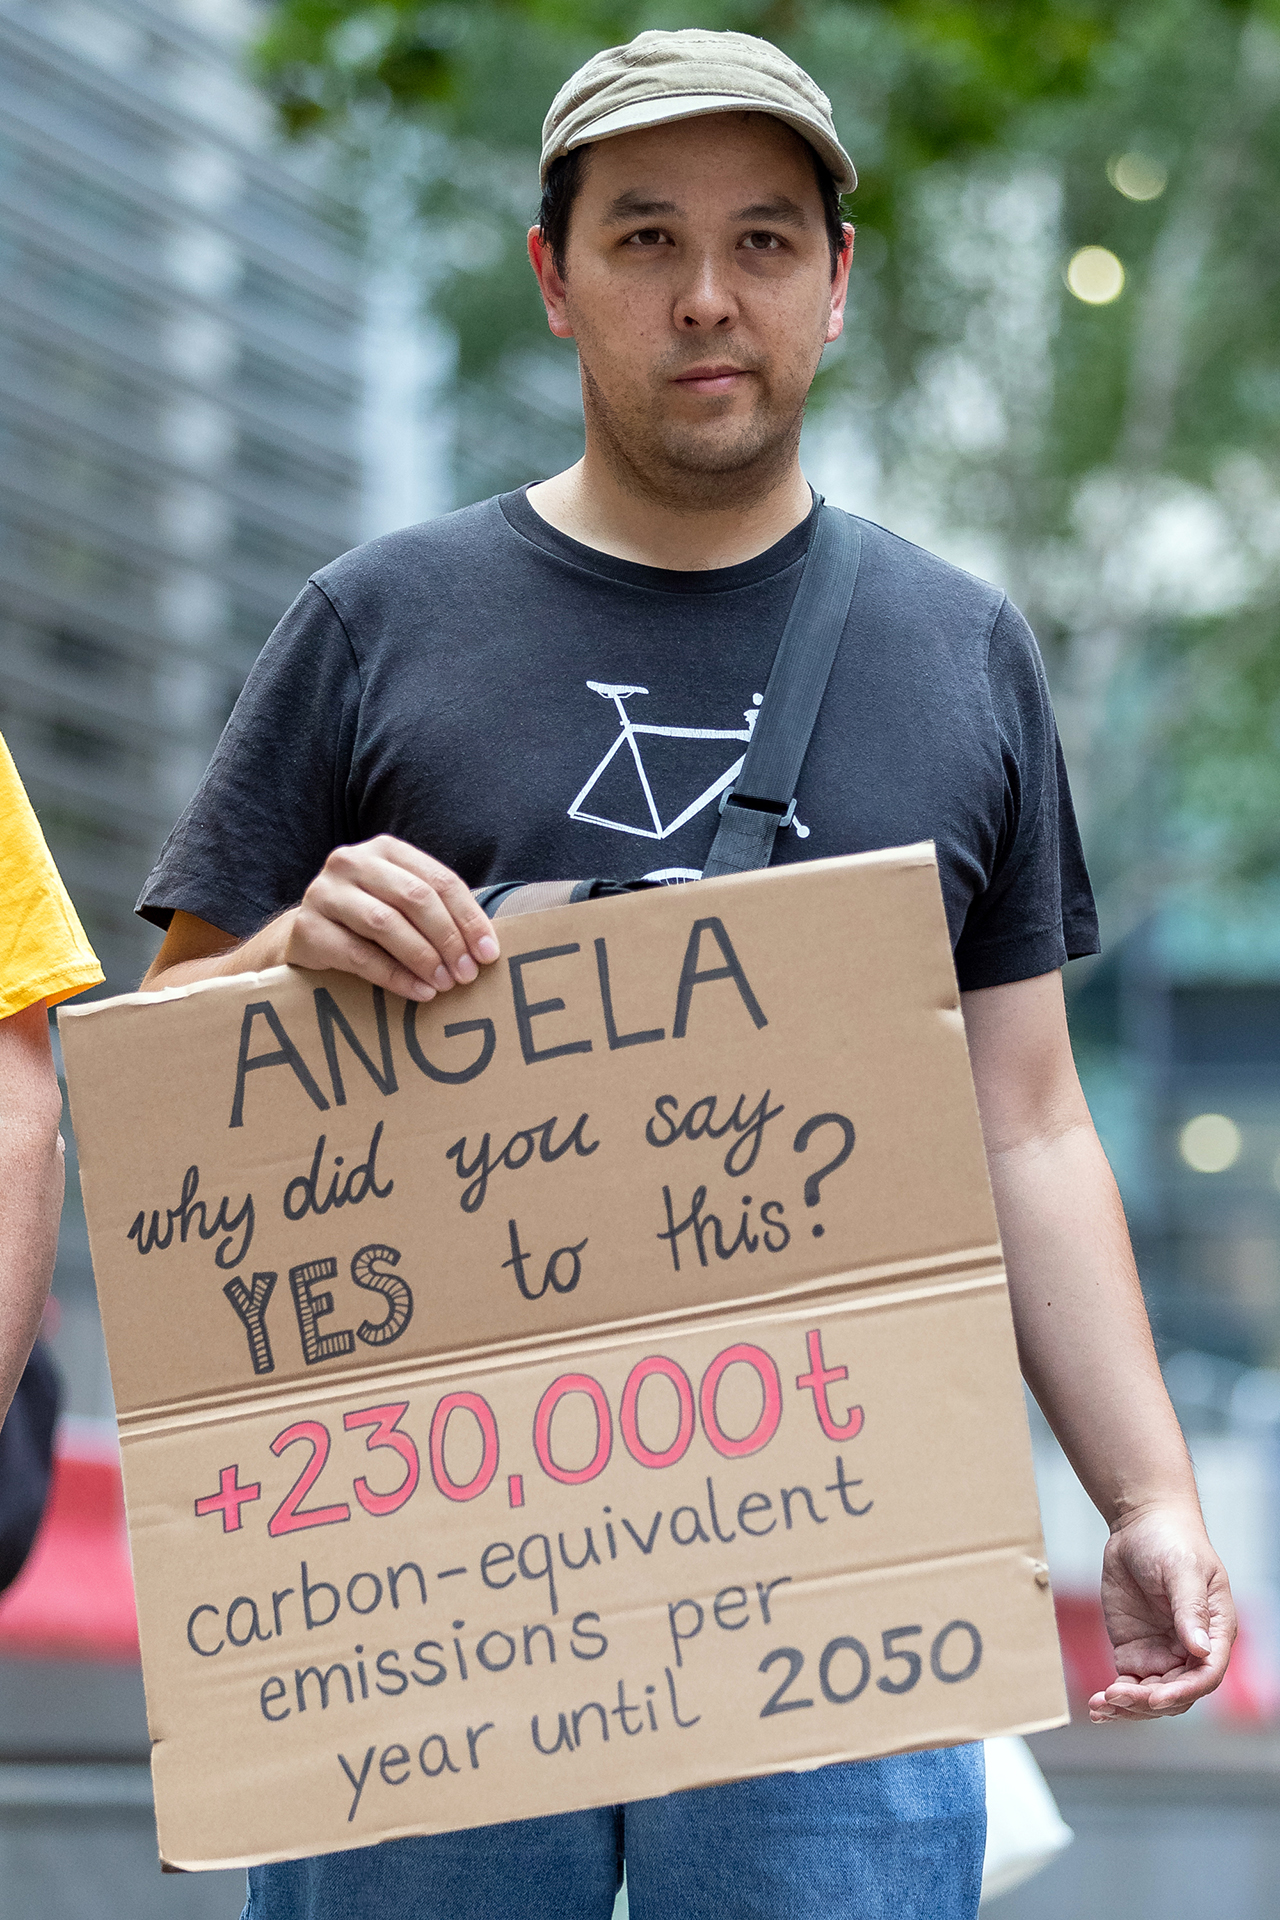 ANGELA
why did you say
YES to this?
+230,000t
carbon-equivalent
emissions per
year until 2050